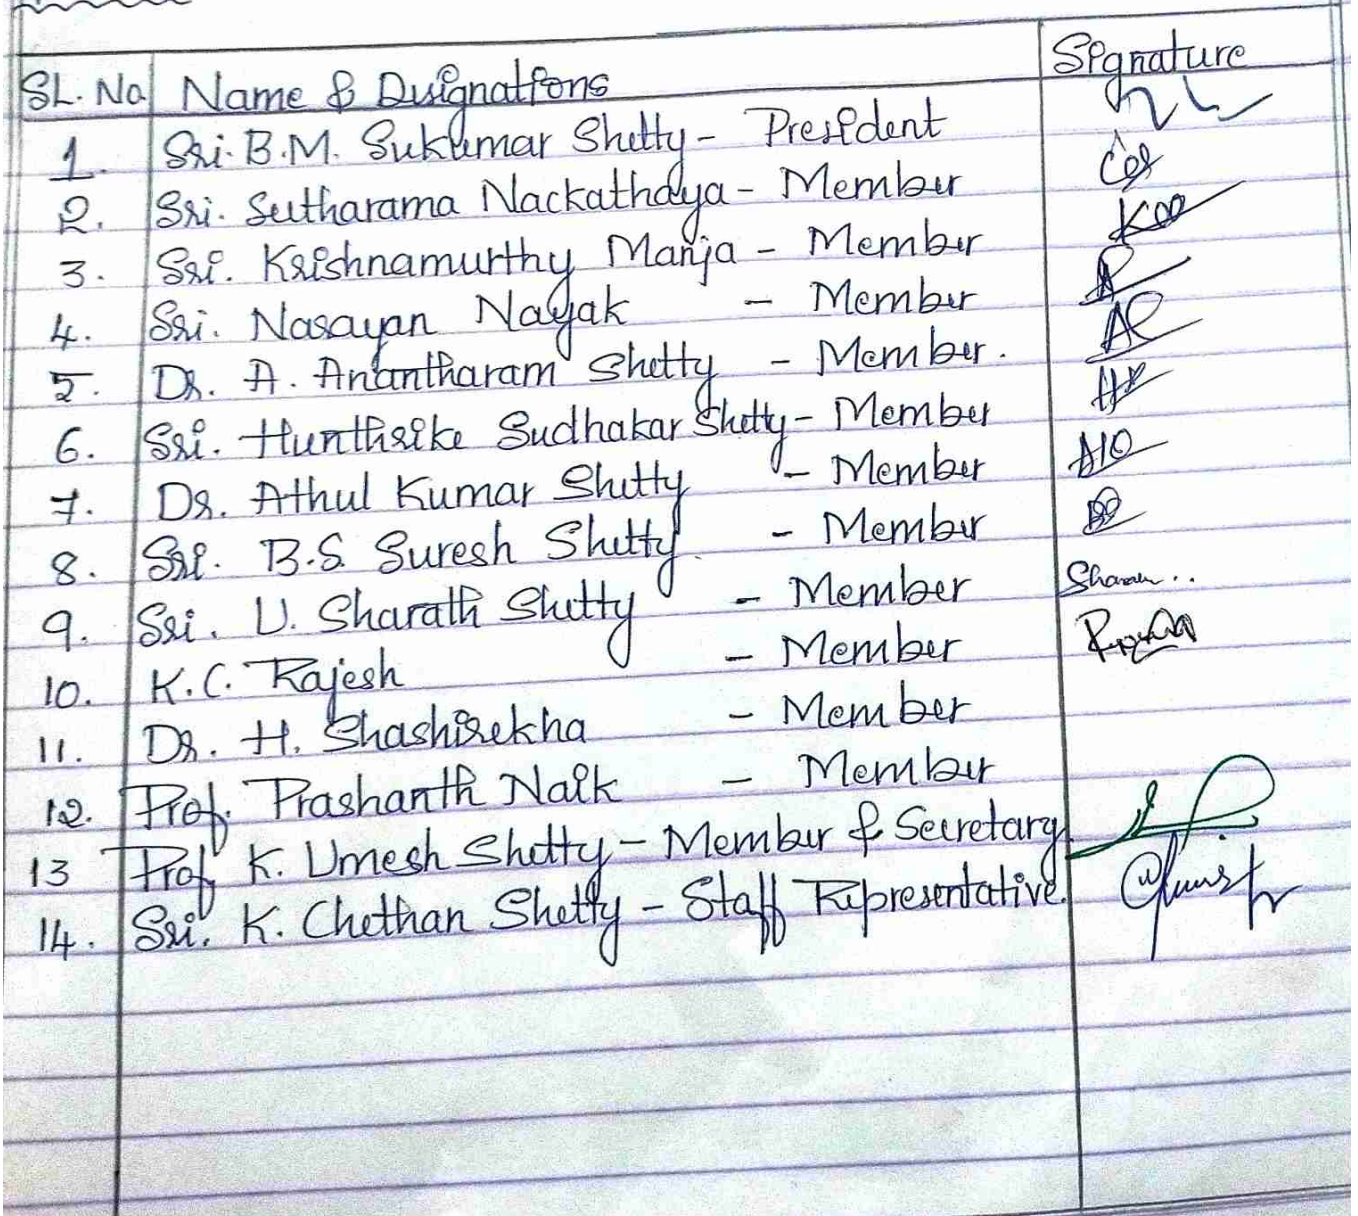 SL. No Name & Designations Signature
1. Sri. B.M. Sukumar Shetty - President
2. Sri. Seetharama Nackathaya - Member
3. Sri. Krishnamurthy Manja - Member
4. Sri. Narayan Nayak - Member
5. Dr. A. Anantharam Shetty - Member.
6. Sri. Hunthrike Sudhakar Shetty - Member
7. Dr. Athul Kumar Shetty - Member
8. Sri. B.S. Suresh Shetty - Member
9. Sri. U. Sharath Shetty - Member
10. K.C. Rajesh - Member
11. Dr. H. Shashirekha - Member
12. Prof. Prashanth Naik - Member
13 Prof. K. Umesh Shetty - Member & Secretary
14. Sri. K. Chethan Shetty - Staff Representative.